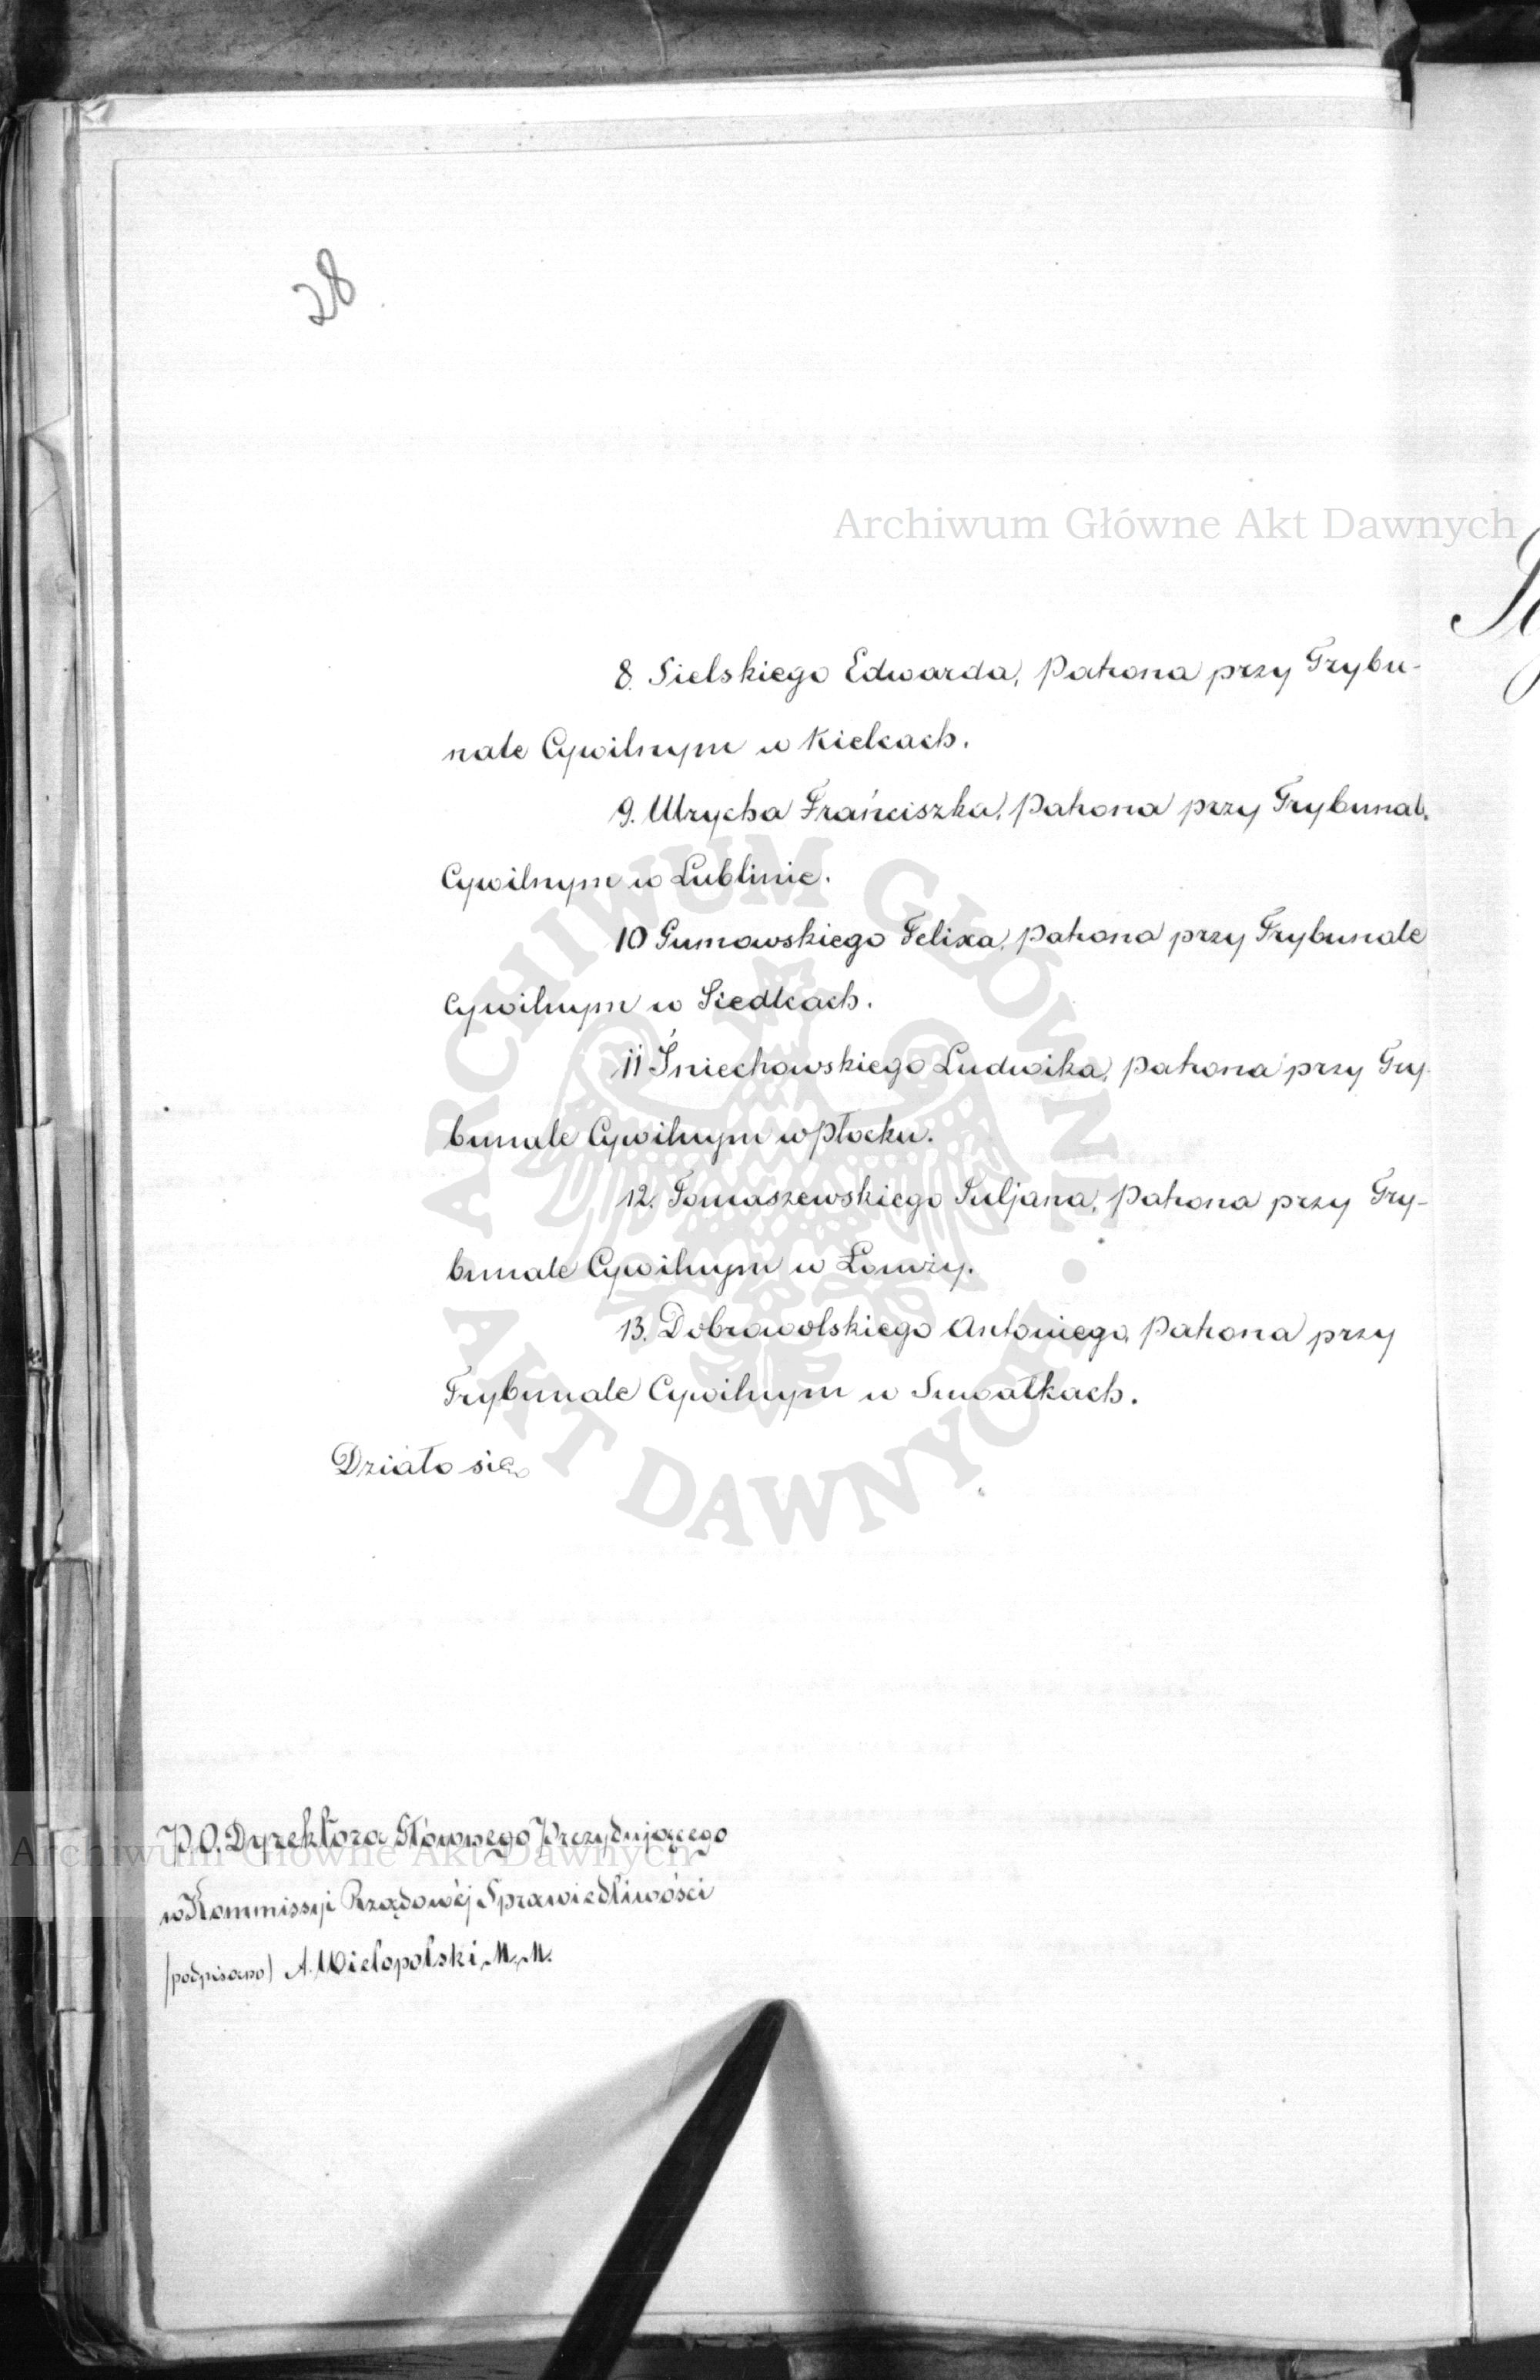 28
Archiwum Główne Akt Dawnych
8. Sielskiego Edwarda, Patrona przy Trybu-
nale Cywilnym w Kielcach.
9. Ulrycha Frańciszka, Patrona przy Trybunal.
Cywilnym w Lublinie.
10 Gumowskiego Felixa, Patrona przy Trybunale
Cywilnym w Siedlcach.
11 Śniechowskiego Ludwika, Patrona przy Try-
bunale Cywilnym w Płocku.
12. Tomaszewskiego Juljana, Patrona przy Try-
bunale Cywilnym w Łomży.
13. Dobrowolskiego Antoniego, Patrona przy
Trybunale Cywilnym w Suwałkach.
Działo się
ARCHIWUM GŁÓWNE · AKT DAWNYCH ·
P.O. Dyrektora Głównego Prezydującego
w Kommissyi Rządowéj Sprawiedliwości
/podpisano/ A. Wielopolski M. M.
Archiwum Główne Akt Dawnych